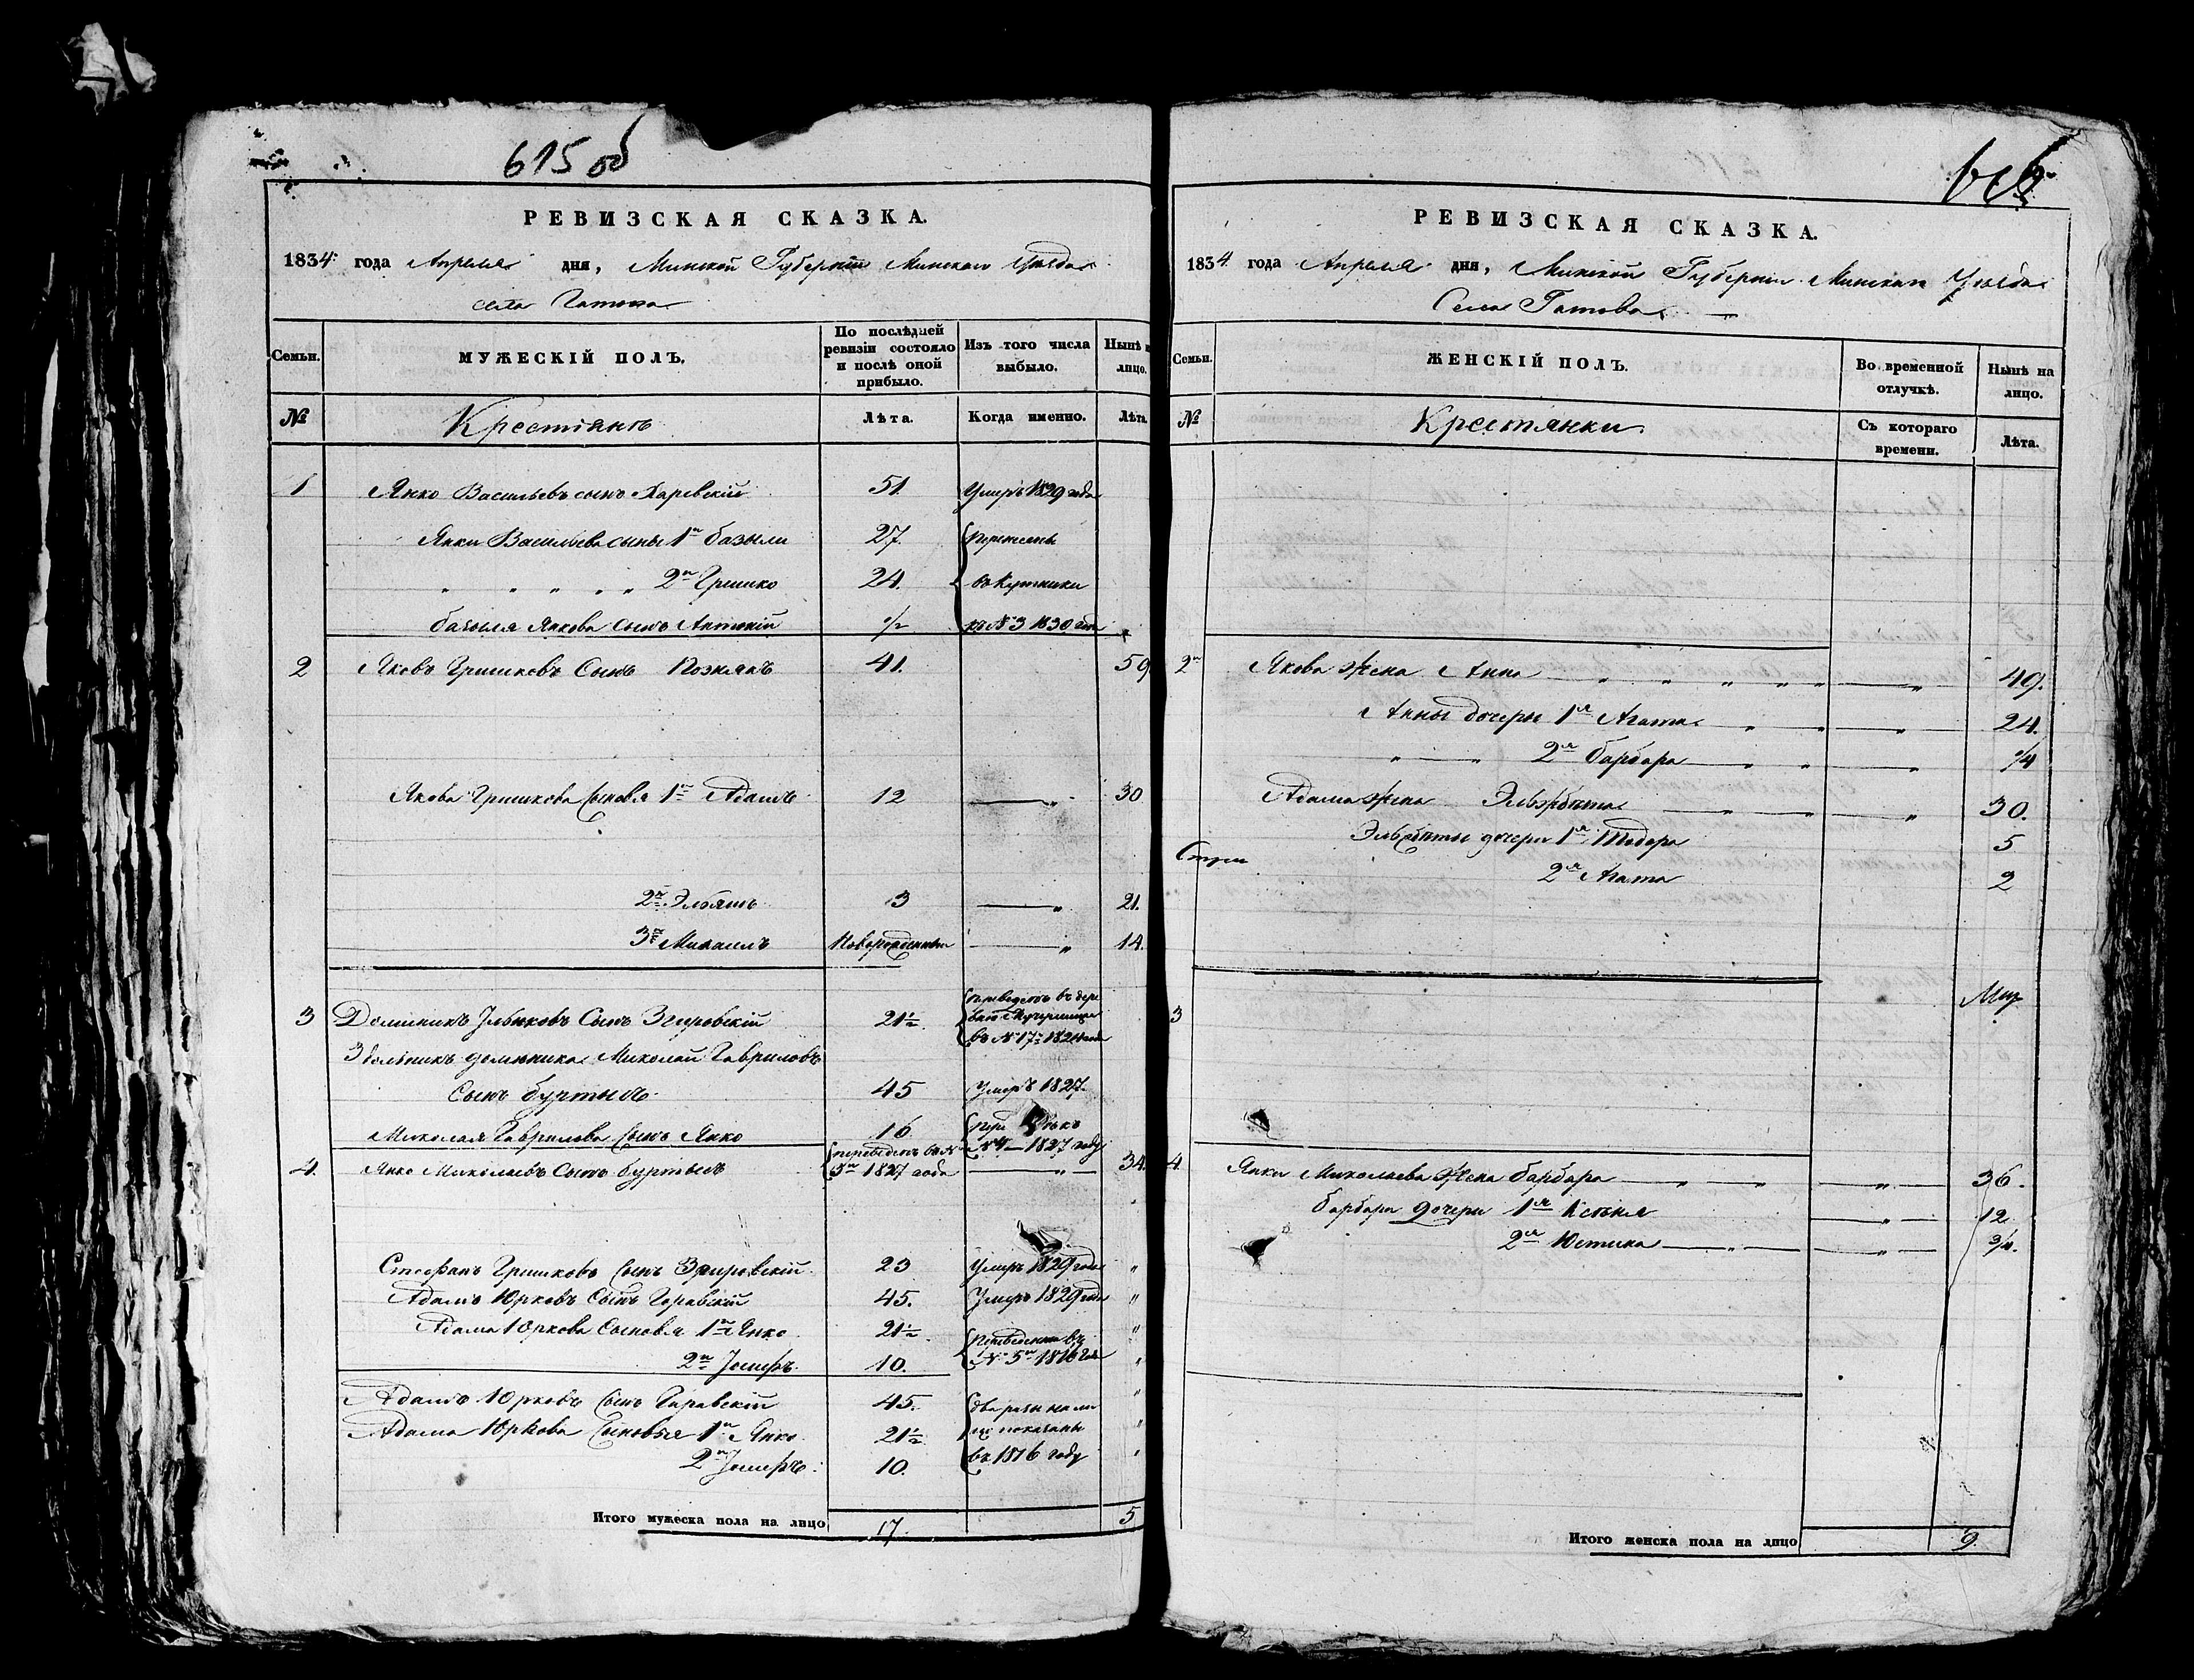 615 об
РЕВИЗСКАЯ СКАЗКА.
1834 года Апреля дня, Минской Губернии Минскаго Уезда
села Гатова
Семьи.
МУЖЕСКІЙ ПОЛЪ.
По послѣдней ревизіи состояло и послѣ оной прибыло.
Изъ того числа выбыло.
Нынѣ н лицо.
№
Крестіянъ
Лѣта.
Когда именно.
Лѣта.
1 Янко Васильевъ сынъ 51. Умеръ 1829 года
Янки Васильева сыны 1й Базыли 27.
" " " " " 2й Гришко 24. въ Кутники
Базыля Янкова Сынъ Антоній 1/2 къ № 3 1830 года
2 Яковъ Гришковъ Сынъ Познякъ 41. 59
Якова Гришкова Сыновья 1й Адамъ 12 " 30
2й 3 " 21.
3й Михаилъ Новорожденный " 14.
3 Доминикъ Сынъ Згировскій 21 1/2 переведенъ в дере
въ № 17 1824 года
Доминика Миколай Гавриловъ
Сынъ Буртыль 45 Умеръ 1827.
Миколая Гаврилова Сынъ Янко 16 № 4 1827 году
4. Янко Миколаевъ Сынъ Буртыль переведенъ въ № 1827 года " 34
Стефанъ Гришковъ Сынъ Згировскій 23 Умеръ 1829 года "
Адамъ Юрковъ Сынъ Гаравскій 45. Умеръ 1829 года "
Адама Юркова Сыновья 1й Янко 21 1/2 переведены въ "
2й Іосифъ. 10. № 5й 1816 года "
Адамъ Юрковъ Сынъ Гаравскій 45. два разы на ли "
Адама Юркова Сыновья 1й Янко 21 1/2 це показаны "
2й Іосифъ. 10. въ 1816 году "
Итого мужеска пола на лицо 17. 5
РЕВИЗСКАЯ СКАЗКА.
1834 года Апреля дня, Минской Губернии Минскаго Уезда
Села Гатова
Семьи.
ЖЕНСКІЙ ПОЛЪ.
Во временной отлучкѣ.
Нынѣ на лицо.
№
Крестянки
Съ котораго времени.
Лѣта.
2й Якова жена Анна " " " " " " 49.
Анны дочеры 1я Агата " " " 24.
" " 2я Барбара " " " 1/4
Адама жена Эльжбета " " " 30.
Эльжбеты дочери 1я Тодора 5
2я Агата 2
3
4 Янки Миколаева жена Барбара " " " 36.
Барбары дочери 1я Ксеня " 12
2я Юстина " " 3/4.
Итого женска пола на лицо 9.